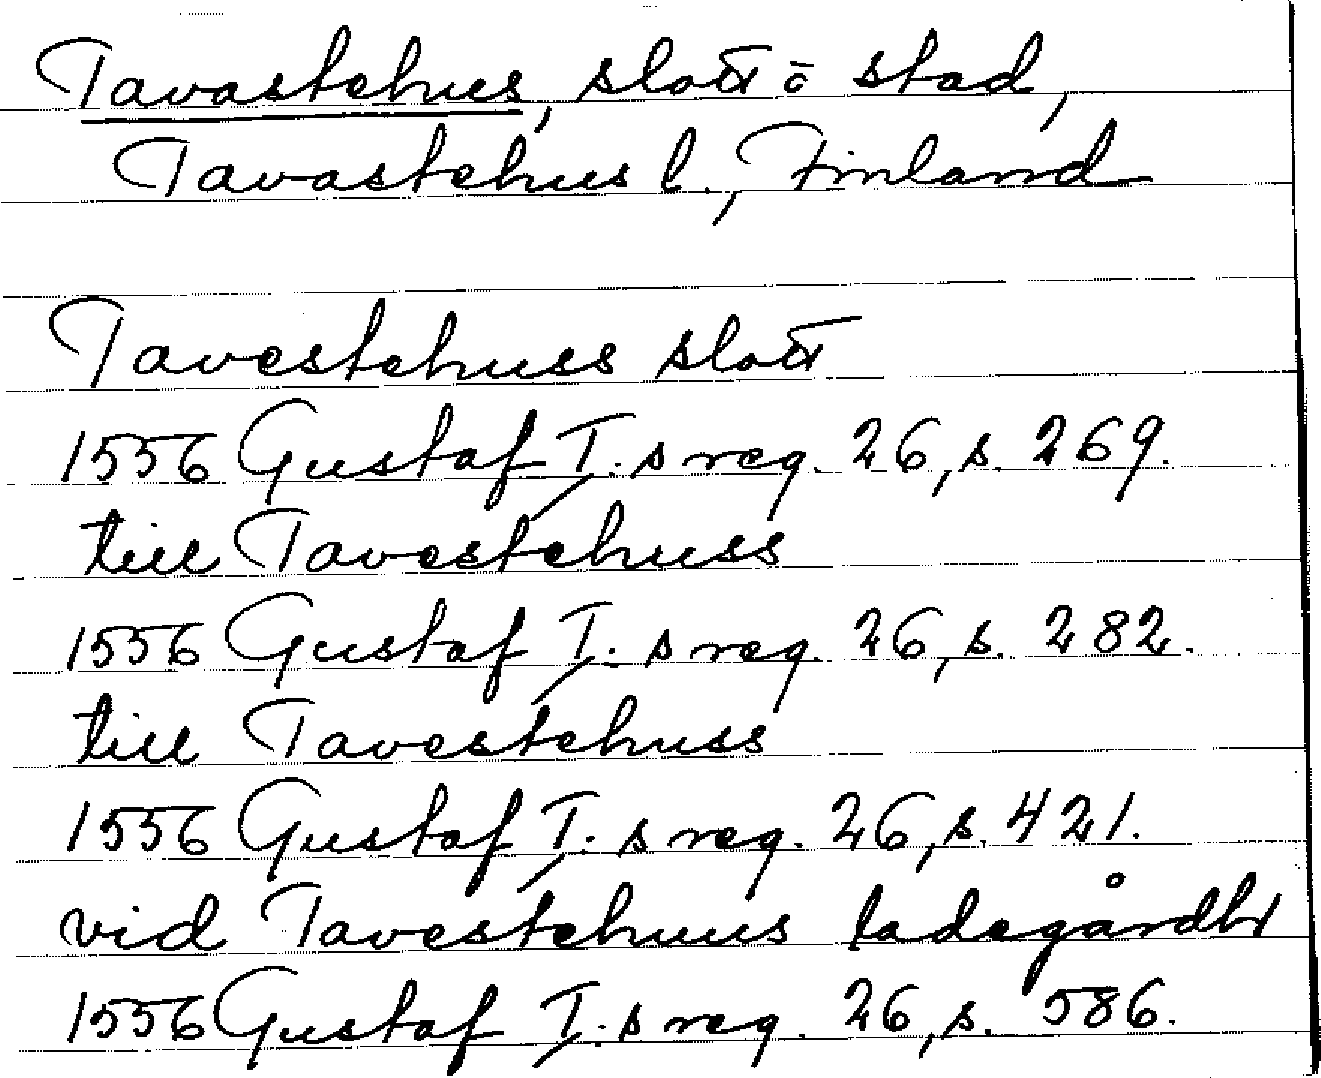 Tavastehus, slott o stad,
Tavastehus l., Finland
Tavestehuss slott
1556 Gustaf I:s reg. 26, s. 269.
till Tavestehuss
1556 Gustaf I:s reg. 26, s. 282.
till Tavestehuss
1556 Gustaf I:s reg. 26, s. 421.
vid Tavestehuus ladegårdh
1556 Gustaf I:s reg. 26, s. 586.